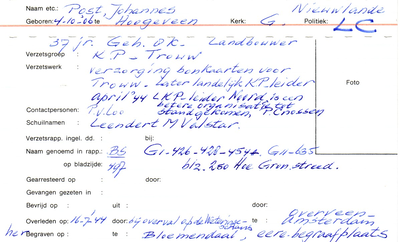 Naam etc.: Post, Johannes Nieuwlande
Geboren: 4-10-'06 te Hoogeveen Kerk: G. Politiek: LC
37 jr. Geh. OK. Landbouwer
Verzetsgroep : K.P - Trouw
Verzetswerk : verzorging bonkaarten voor
Trouw - later landelijk K.P. leider
april '44 LKP-leider Noord, is een
betere organisatie tot
Contactpersonen: stand gekomen, P. Cnossen
Schuilnamen : Leendert M Valstar.
Foto
Verzetsrapp. ingel. dd. : bij:
Naam genoemd in rapp.: BS G1-426-428-454 G11-635
op bladzijde: blz. 280 Hoe Gron. streed.
Gearresteerd op : door:
Gevangen gezeten in :
Bevrijd op : uit : door:
Overveen -
Overleden op : 16-7-'44 door: bij overval op de Weterings- te : Amsterdam
schans
her Begraven op : te : Bloemendaal, eere-begraafplaats